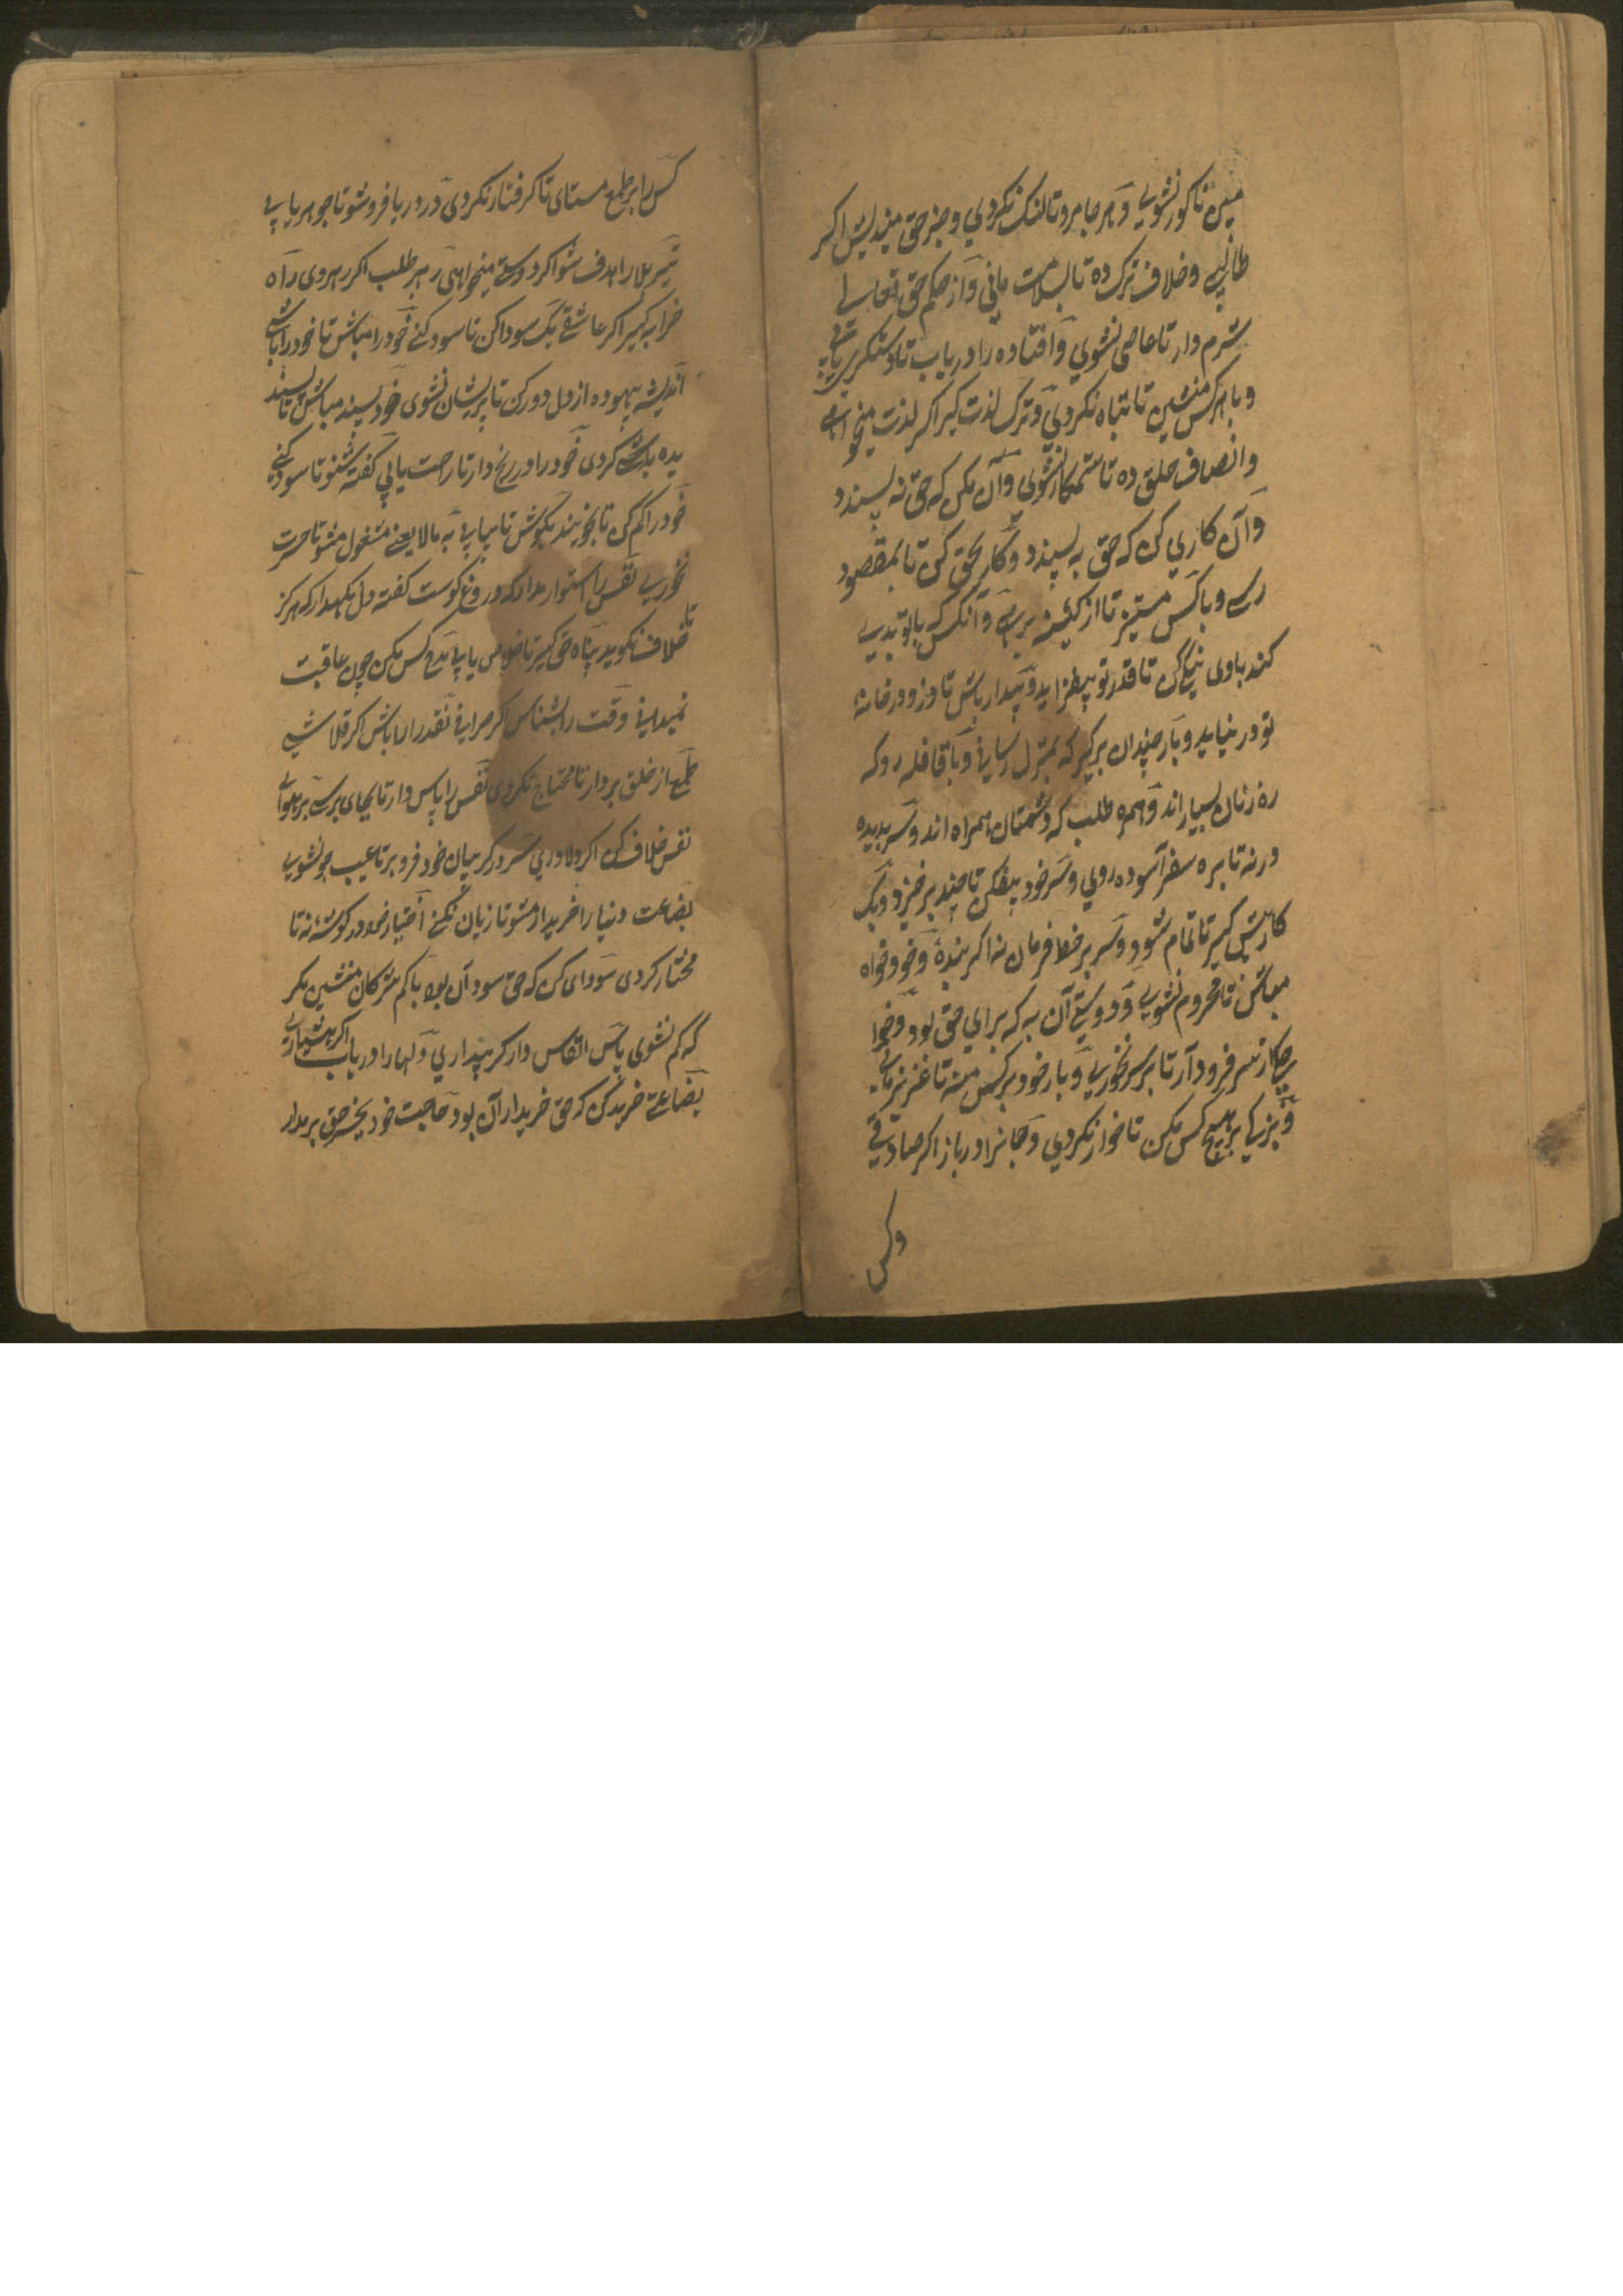 مبین تا کور نشوی و هر جا مرو تا لنک نکردی و جز حق میندیش اکر
طالبی و خلاف ترک ده تا بسلامت مانی و از حکم حق تعالی
شرم دار تا عاصی نشوی و افتاده را دریاب تا دستکیری یابی
و با هرکس منشین تا تباه نکردی و ترک لذت کیر اکر لذت میخواهی
و انصاف خلق ده تا ستمکار نشوی و آن مکن که حق نه پسندد
و آن کاری کن که حق به پسندد و کار بحق کن تا بمقصود
رسی و با کس مستیز تا از کینه برهی و آنکس که با تو بدی
کند با وی نیکی کن تا قدر تو بیفزاید و بیدار باش تا دزد در خانهٔ
تو در نیاید و بار چندان برکیر که بمنزل رسانی و با قافله رو که
ره زنان بسیار اند و همره طلب که دشمنان همراه اند و سر بدیده
ور نه تا بره سفر آسوده روی و سر خود بیفکن تا چند برخیزد و یک
کار پیش کیر تا تمام شود و سر بر خط فرمان نه اکر بندهٔ و خود خواه
مباش تا محروم نشوی و دوستی آن به که برای حق بود و خوا
چکار سر فرود آر تا بر سر نخوری و بار خود بر کس منه تا عزیز مانی
و بهیچ کس مکن تا خوار نکردی و جانرا در باز اکر صادقی
وکس
کس را بر طمع مستای تا کرفتار نکردی و در دریا فرو شو تا جوهر یابی
تیر بلا را هدف شو اکر دوستی میخواهی رهبر طلب اکر رهروی راه
خرابه کیر اکر عاشقی یک سودا کن تا سود کنی خود را مباش تا خود را باشی
اندیشه بیهوده از دل دور کن تا پریشان نشوی خود پسند مباش تا پسند
یده کردی خود را در رنج دار تا راحت یابی کفته بشنو تا سود کنی
خود را کم کن تا بجویند بکوش تا بیابی به مالایعنی مشغول مشو تا حسرت
نخوری نفس را استوار مدار که دروغ کوست کفته دل نکهدار که هرکز
تا خلاف نکوید پناه حق کیر تا خلاص یابی مدح کس مکن چون عاقبت
نمیدانی وقت را بشناس اکر صرافی نقد را باش اکر قلاشی
طمع از خلق بردار تا محتاج نکردی نفس را پاس دار تا بجای برسی بر هوای
نفس خلاف کن اکر دلاوری سر در کریبان خود فرو بر تا عیب جو نشوی
بضاعت دنیا را خریدار مشو تا زیان نکنی اختیار خود در کوشه نه تا
مختار کردی سودای کن که حق سود آن بود با کم شدکان منشین مکر
که کم نشوی پاس انفاس دار کر بیداری و لها را دریاب اکر هشیاری
بضاعتی خرید کن که حق خریدار آن بود حاجت خود بجز حق بر مدار